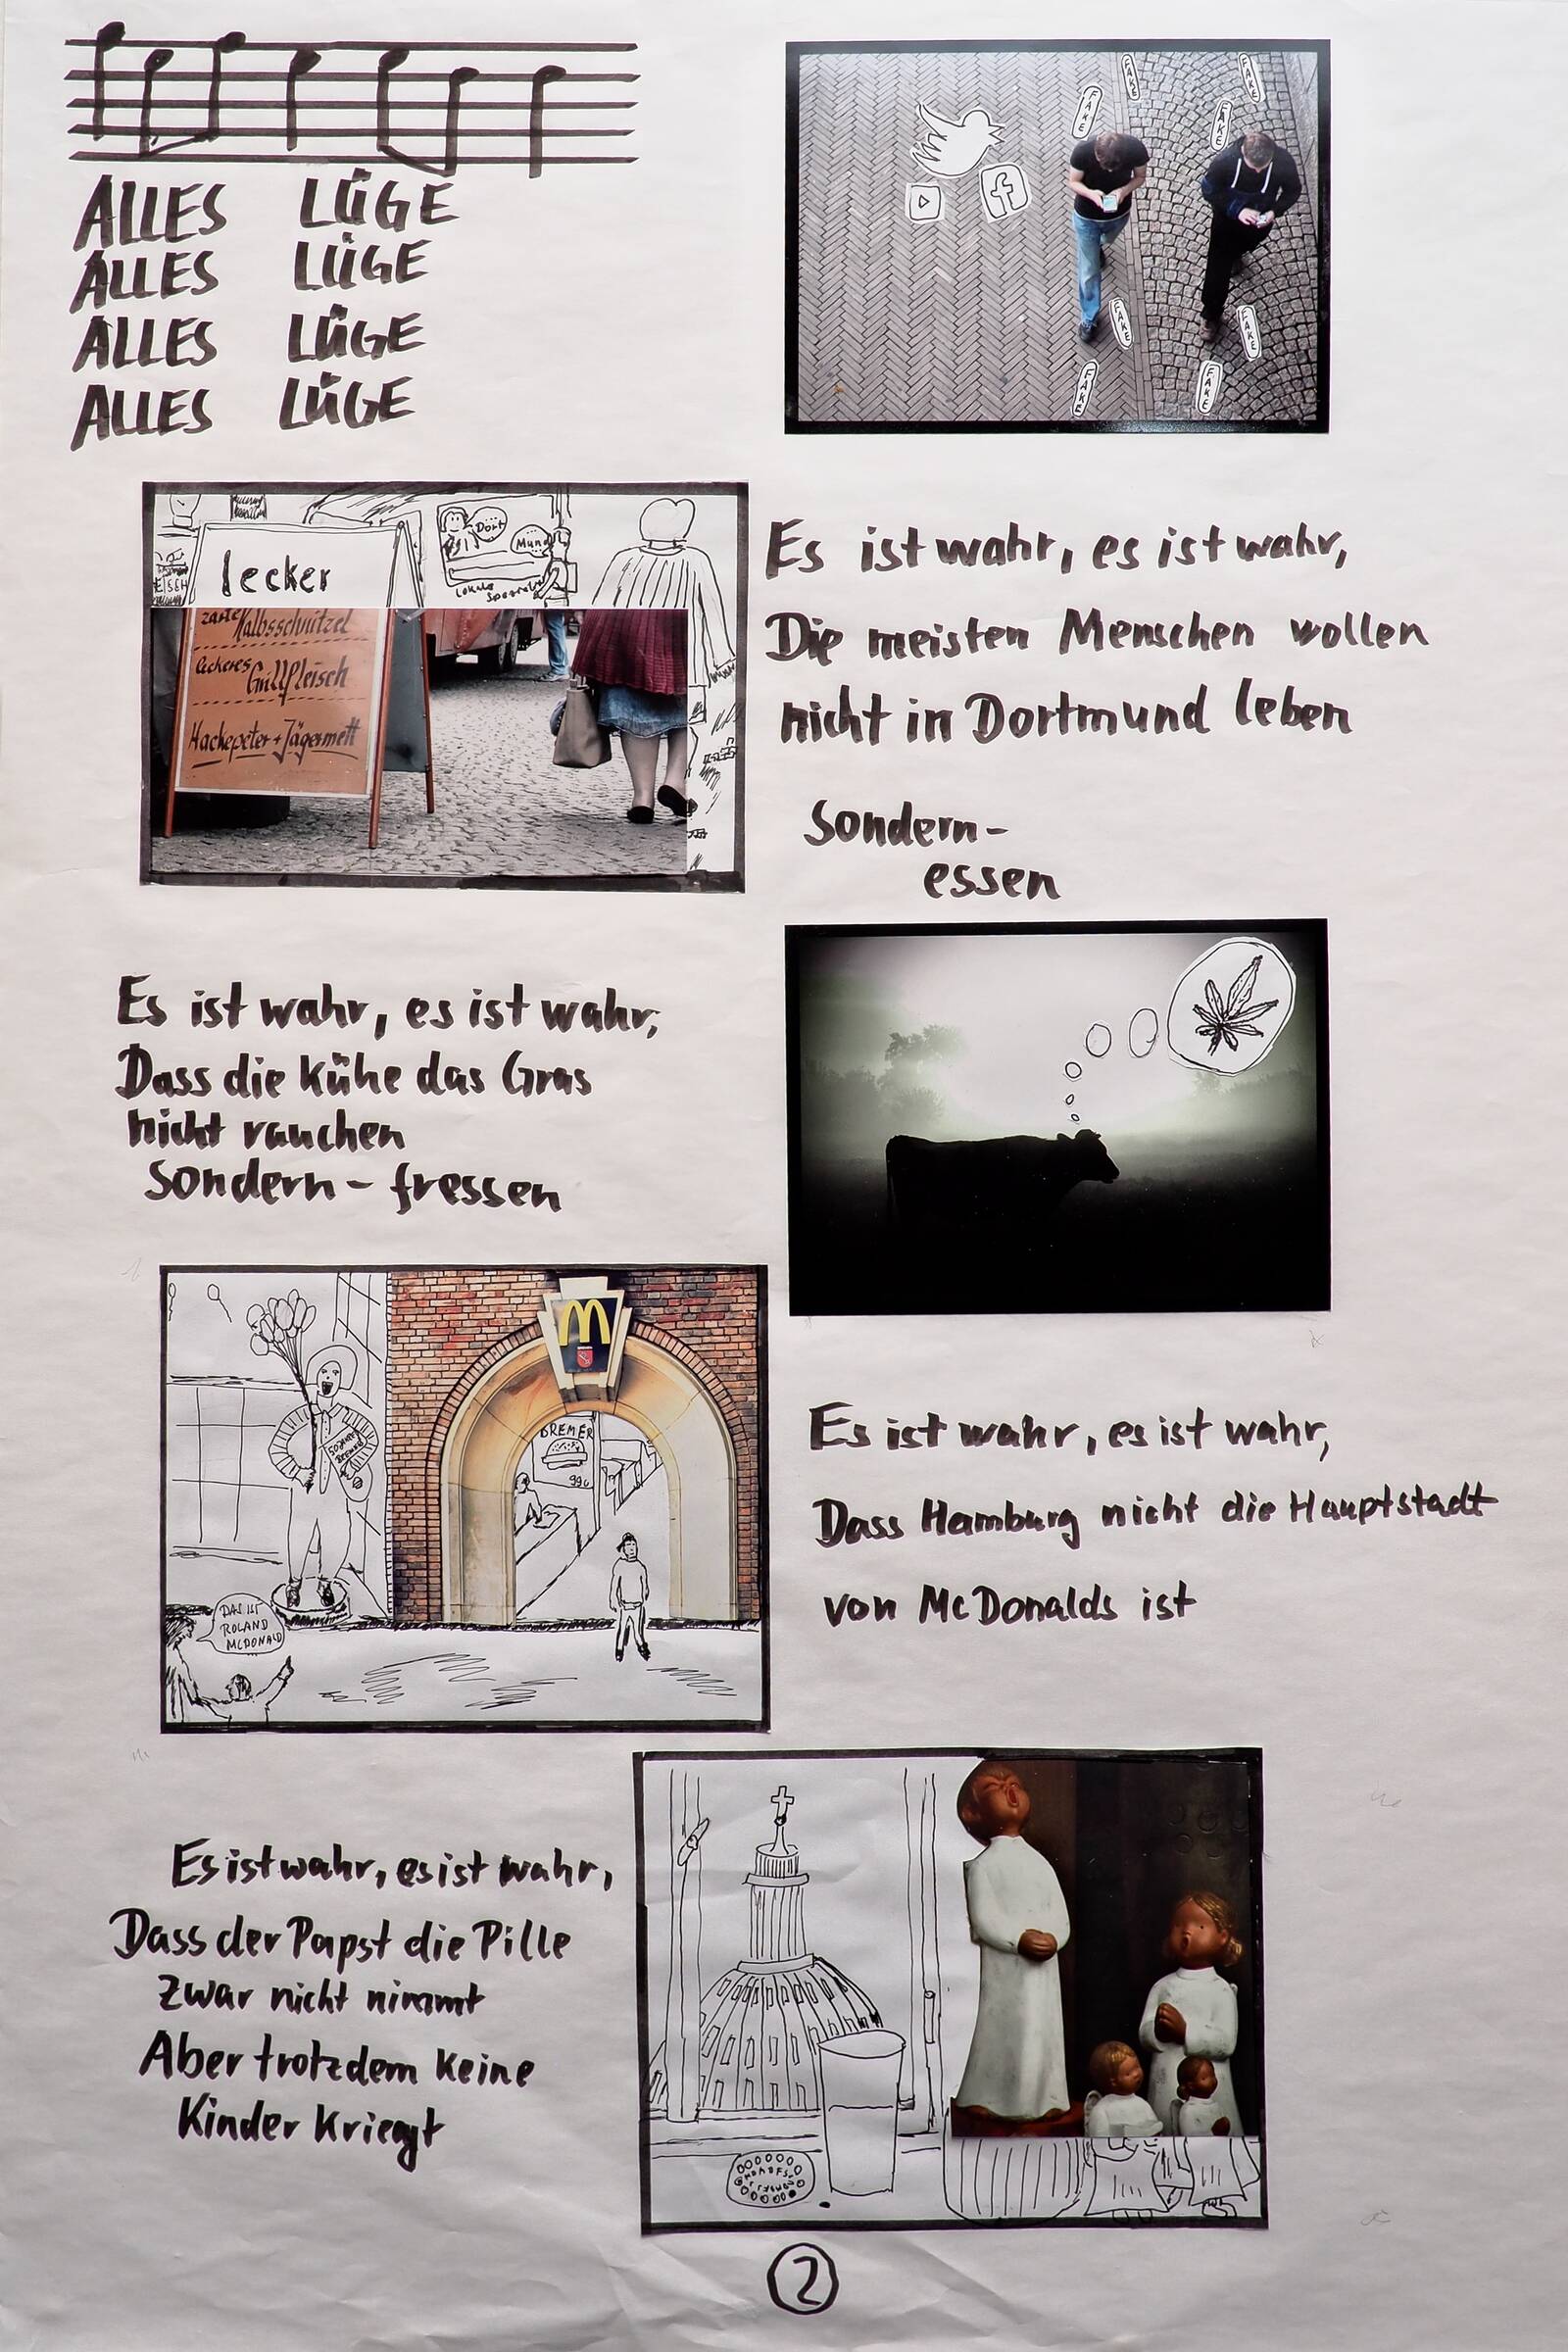 ALLES LÜGE
ALLES LÜGE
ALLES LÜGE
ALLES LÜGE
FAKE
FAKE
FAKE
FAKE
FAKE
FAKE
FAKE
FAKE
lecker
Dort
Mund
Lokale
zarte Kalbsschnitzel
leckeres Grillfleisch
Hackepeter + Jägermett
Es ist wahr, es ist wahr,
Die meisten Menschen wollen
nicht in Dortmund leben
Sondern-
essen
Es ist wahr, es ist wahr,
Dass die Kühe das Gras
nicht rauchen
Sondern - fressen
M
BREMER
99c
50 JAHRE
BREMER
DAS IST
ROLAND
MCDONALD
Es ist wahr, es ist wahr,
Dass Hamburg nicht die Hauptstadt
von McDonalds ist
Es ist wahr, es ist wahr,
Dass der Papst die Pille
zwar nicht nimmt
Aber trotzdem keine
Kinder kriegt
2